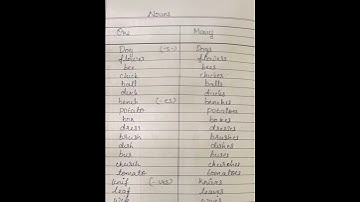 Nouns
One Many
Dog (-s-) Dogs
flower flowers
bee bees
chick chicks
ball balls
duck ducks
bench (-es) benches
potato potatoes
box boxes
dress dresses
brush brushes
dish dishes
bus buses
church churches
tomato tomatoes
knif (-ves) knives
leaf leaves